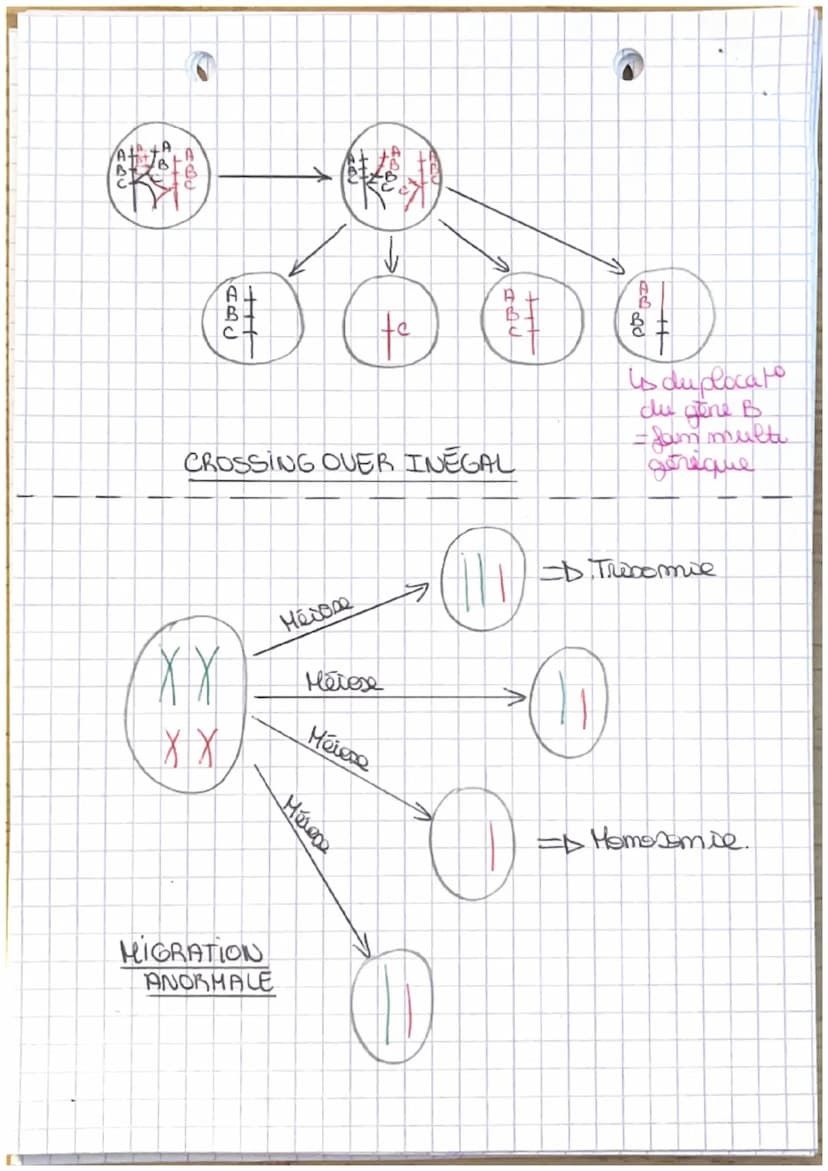 A A A A
B B B
C C C
A A A
B B B B
C C C
A
B
C
C
A
B
C
A
B
B
C
↳ duplocat°
du gène B
= fam multi
génique
CROSSING OVER INÉGAL
Méiose
=> Trisomie
Méiose
Méiose
=> Monosomie.
Méiose
MIGRATION
ANORMALE